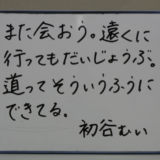 また会おう。遠くに
行ってもだいじょうぶ。
道ってそういうふうに
できてる。
初谷むい